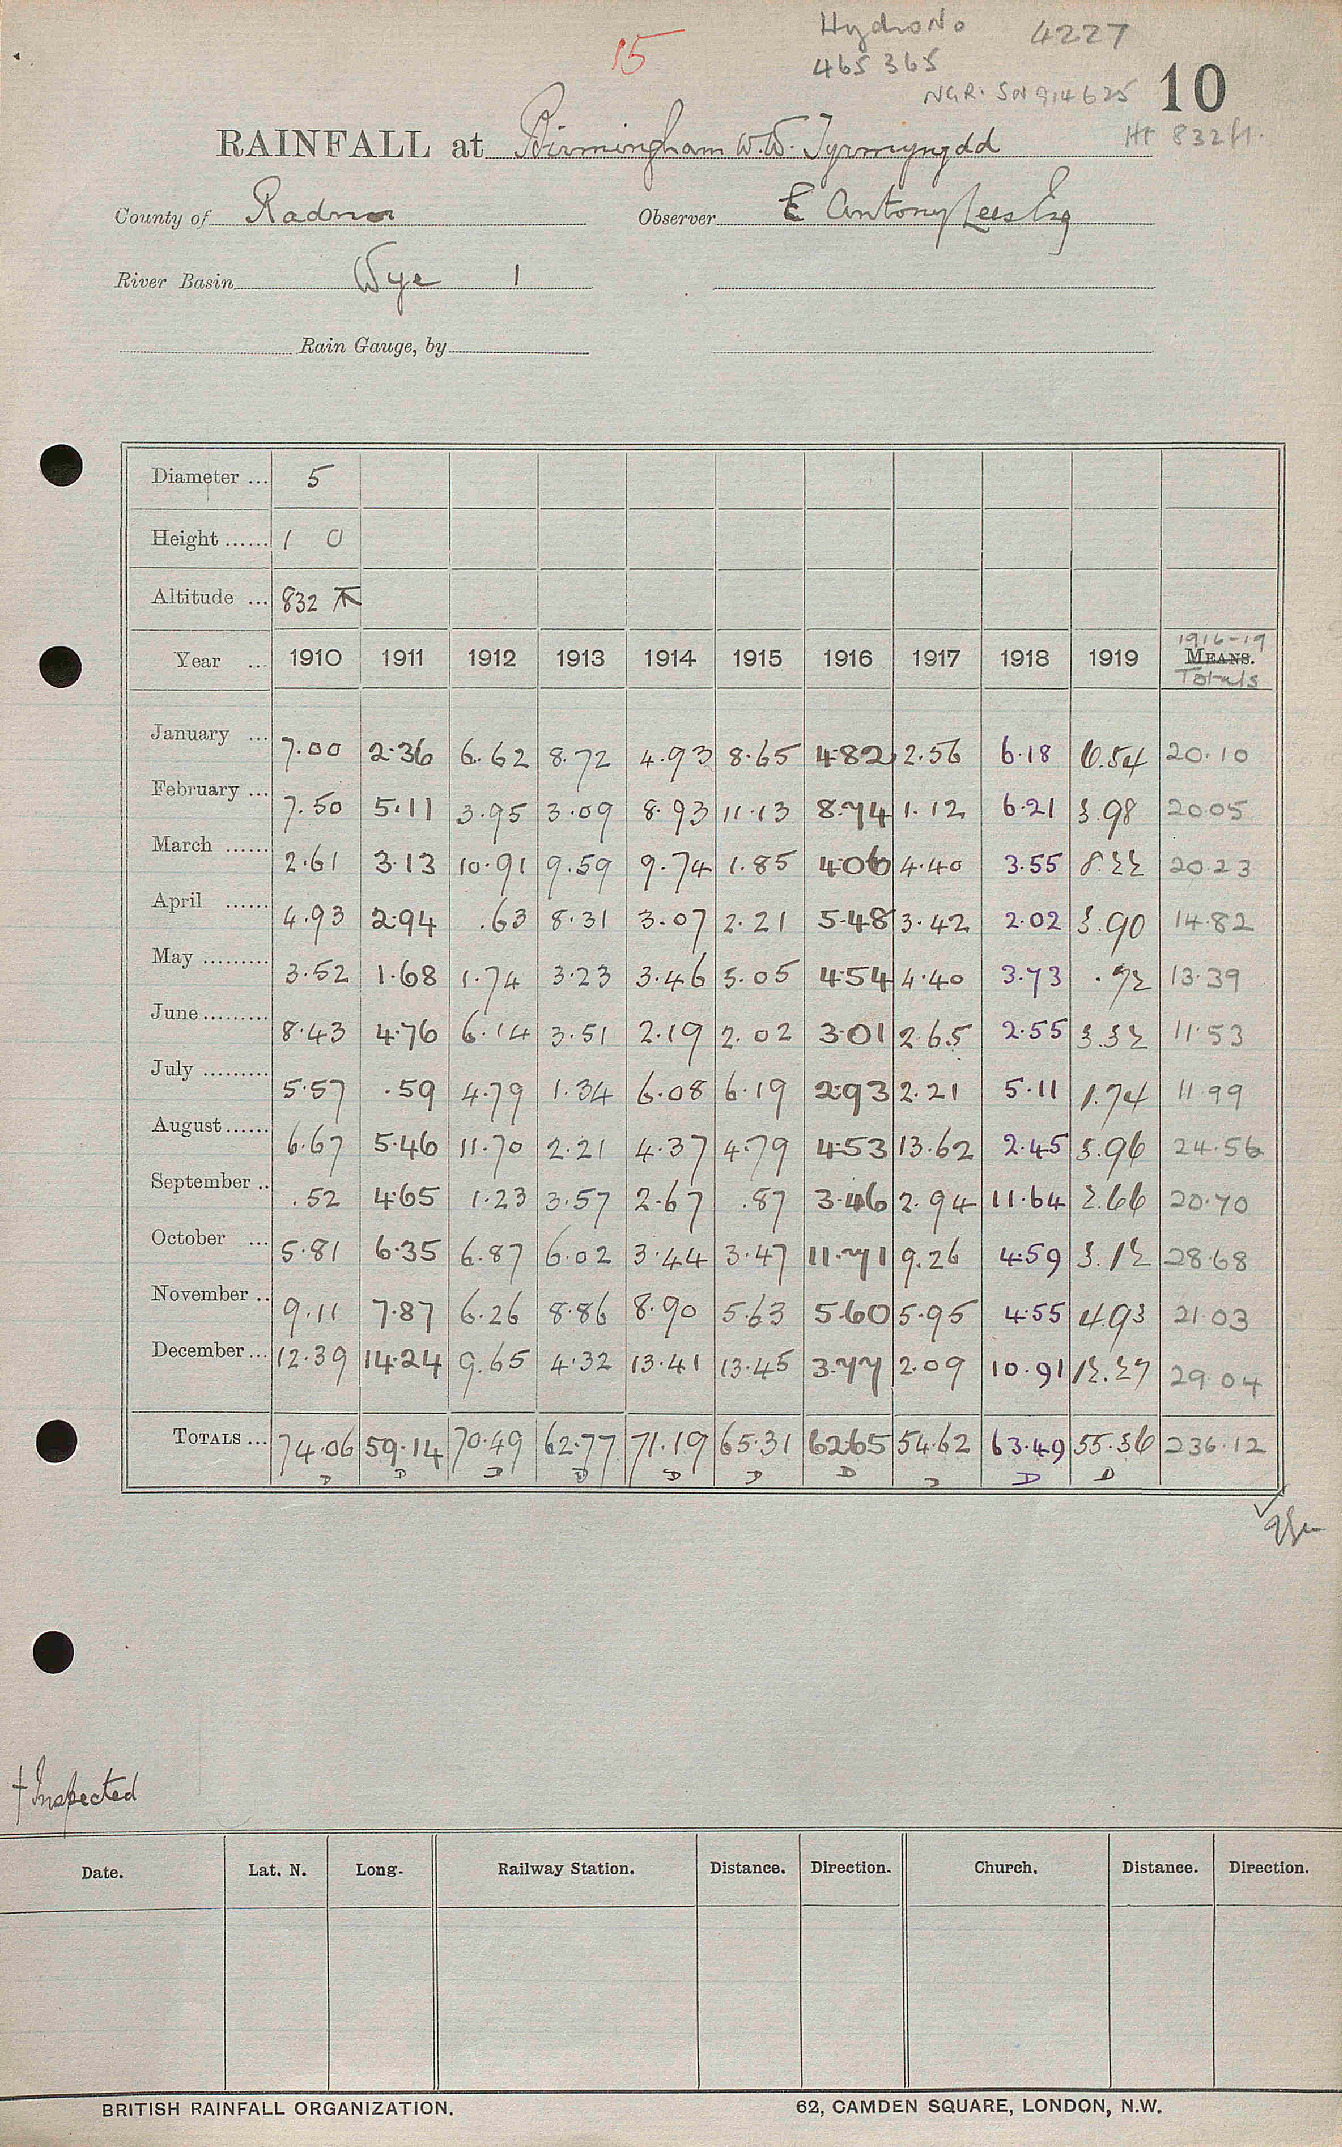 15
HydroNo 4227
465 365
NGR. SN 914625
10
RAINFALL at Birmingham W.W. Tyrmynydd
Ht 832ft.
County of Radnor Observer E Antony Lees Esq
River Basin Wye 1
Rain Gauge, by
Diameter ... 5
Height ...... 1 0
Altitude ... 832
1916-19
Year ... 1910 1911 1912 1913 1914 1915 1916 1917 1918 1919 MEANS.
Totals
January ... 7.00 2.36 6.62 8.72 4.93 8.65 4.82 2.56 6.18 6.54 20.10
February ... 7.50 5.11 3.95 3.09 8.93 11.13 8.74 1.12 6.21 3.98 20.05
March ...... 2.61 3.13 10.91 9.59 9.74 1.85 4.06 4.40 3.55 8.22 20.23
April ...... 4.93 2.94 .63 8.31 3.07 2.21 5.48 3.42 2.02 3.90 14.82
May ......... 3.52 1.68 1.74 3.23 3.46 5.05 4.54 4.40 3.73 .72 13.39
June ......... 8.43 4.76 6.14 3.51 2.19 2.02 3.01 2.65 2.55 3.32 11.53
July ......... 5.57 .59 4.79 1.34 6.08 6.19 2.93 2.21 5.11 1.74 11.99
August ...... 6.67 5.46 11.70 2.21 4.37 4.79 4.53 13.62 2.45 3.96 24.56
September .. .52 4.65 1.23 3.57 2.67 .87 3.46 2.94 11.64 2.66 20.70
October ... 5.81 6.35 6.87 6.02 3.44 3.47 11.71 9.26 4.59 3.12 28.68
November .. 9.11 7.87 6.26 8.86 8.90 5.63 5.60 5.95 4.55 4.93 21.03
December ... 12.39 14.24 9.65 4.32 13.41 13.45 3.77 2.09 10.91 12.27 29.04
TOTALS ... 74.06 59.14 70.49 62.77 71.19 65.31 62.65 54.62 63.49 55.36 236.12
D D D D D D D D D D
† Inspected
Date. Lat. N. Long. Railway Station. Distance. Direction. Church. Distance. Direction.
BRITISH RAINFALL ORGANIZATION. 62, CAMDEN SQUARE, LONDON, N.W.